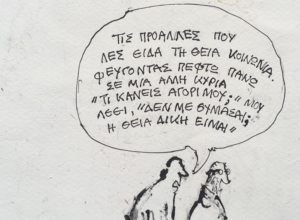 ΤΙΣ ΠΡΟΑΛΛΕΣ ΠΟΥ
ΛΕΣ ΕΙΔΑ ΤΗ ΘΕΙΑ ΚΟΙΝΩΝΙΑ.
ΦΕΥΓΟΝΤΑΣ ΠΕΦΤΩ ΠΑΝΩ
ΣΕ ΜΙΑ ΑΛΛΗ ΚΥΡΙΑ
"ΤΙ ΚΑΝΕΙΣ ΑΓΟΡΙ ΜΟΥ;" ΜΟΥ
ΛΕΕΙ, "ΔΕΝ ΜΕ ΘΥΜΑΣΑΙ;
Η ΘΕΙΑ ΔΙΚΗ ΕΙΜΑΙ"